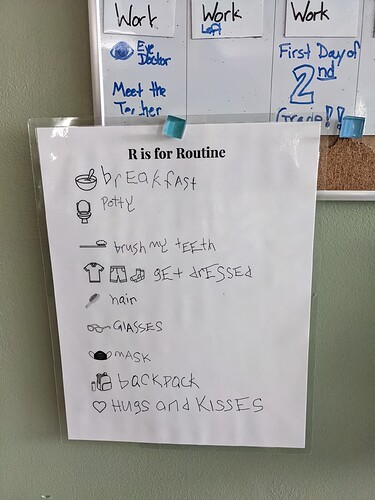 Work
Work
Work
Left
Eye
Doctor
Meet the
Teacher
First Day of
2nd
Grade!!
R is for Routine
brEakfAST
Potty
brush my TEETH
gET drESSED
hair
GLASSES
mASK
bACKPACK
HUgS and KISSES